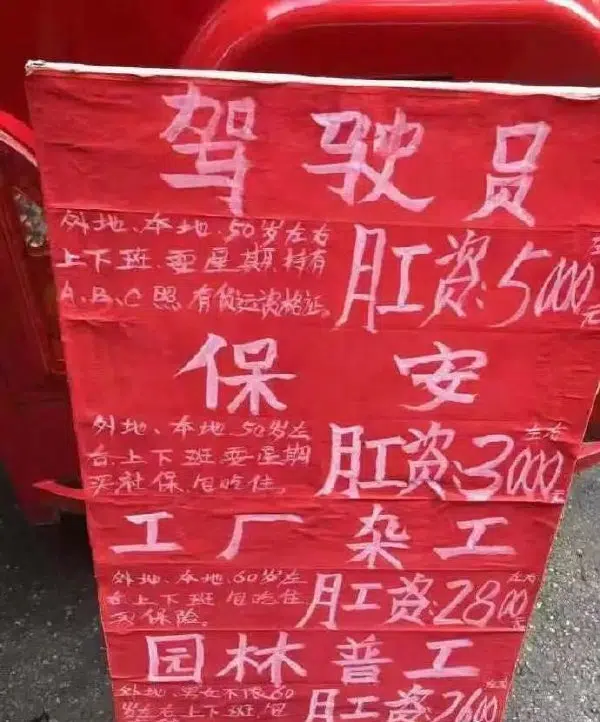 驾驶员
外地、本地、50岁左右
上下班、耍星期,持有
A、B、C照 有货运资格证。
月工资:5000元
保安
外地、本地、50岁左
右、上下班耍星期
买社保、包吃住。
月工资:3000元左右
工厂杂工
外地、本地、60岁左
右上下班 包吃住
买保险。
月工资:2800元左右
园林普工
外地、男女不限60
岁左右上下班、包
月工资2600左右